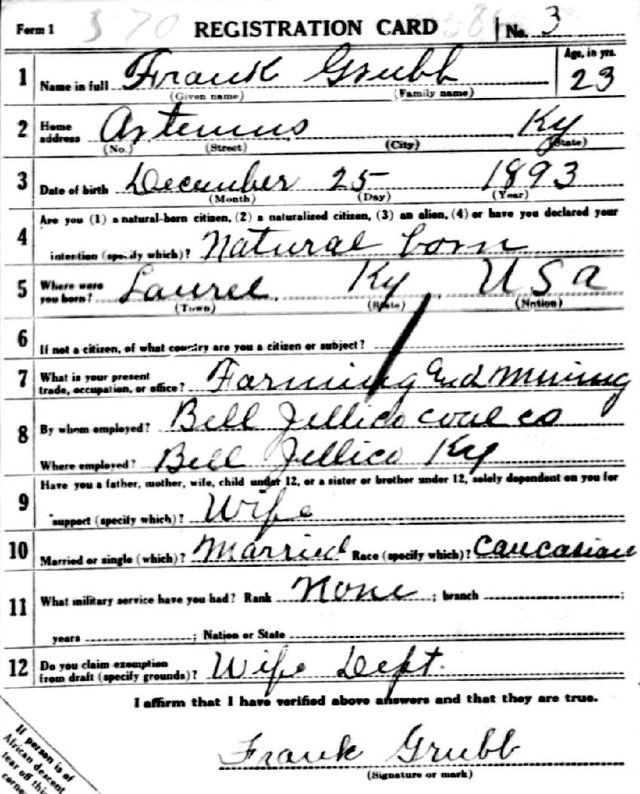 Form 1 370 REGISTRATION CARD No. 3
1 Name in full Frank Grubb Age, in yrs. 23
(Given name) (Family name)
2 Home address Artemus Ky
(No.) (Street) (City) (State)
3 Date of birth December 25 1893
(Month) (Day) (Year)
Are you (1) a natural-born citizen, (2) a naturalized citizen, (3) an alien, (4) or have you declared your
4 intention (specify which)? Natural born
5 Where were you born? Laurel Ky USA
(Town) (State) (Nation)
6 If not a citizen, of what country are you a citizen or subject?
7 What is your present trade, occupation, or office? Farming and mining
8 By whom employed? Bell Jellico coal co
Where employed? Bell Jellico Ky
Have you a father, mother, wife, child under 12, or a sister or brother under 12, solely dependent on you for
9 support (specify which)? Wife
10 Married or single (which)? Married Race (specify which)? Caucasian
11 What military service have you had? Rank None ; branch ;
years ; Nation or State
12 Do you claim exemption from draft (specify grounds)? Wife Dept.
I affirm that I have verified above answers and that they are true.
Frank Grubb
(Signature or mark)
If person is of
African descent
tear off this
corner